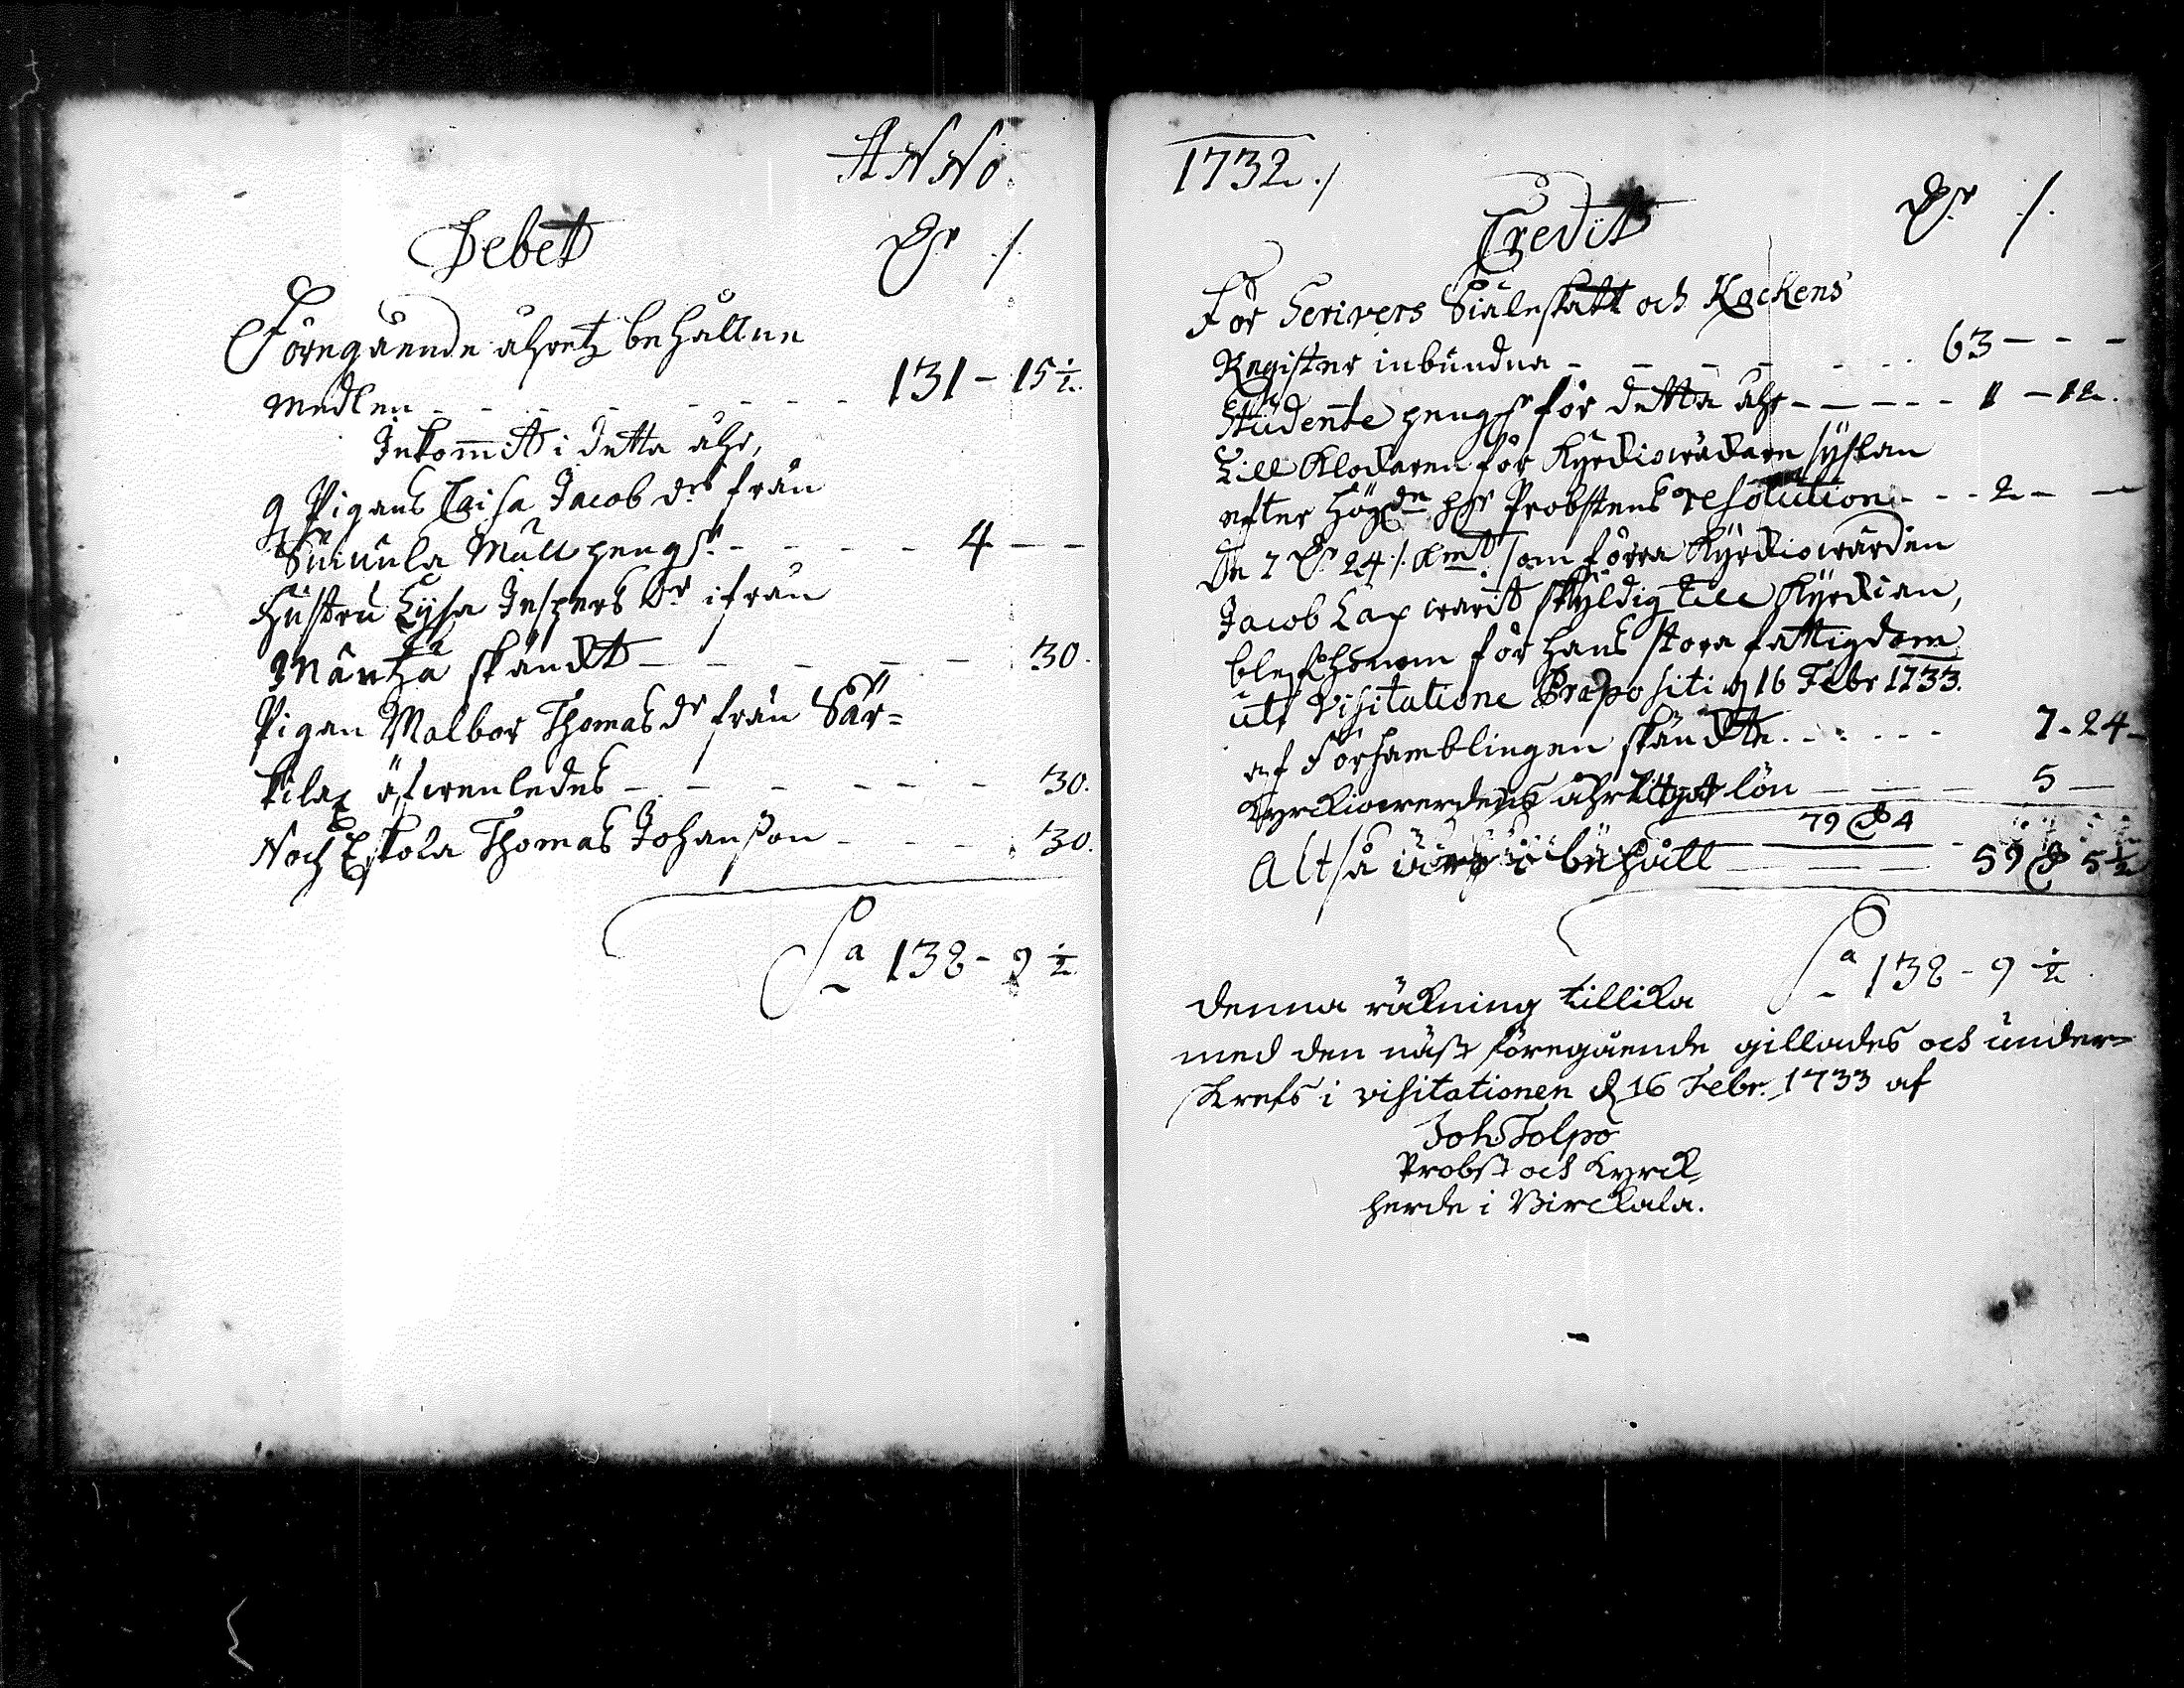 ANNO
Debet Dr ./.
Föregående åhretz behållne
medlen - - - - - - - - 131 - 15 1/2.
Inkommit i detta åhr,
Pigans Caisa Jacobs dr från
Suiüla Mull peng:r - - - - - 4 - -
Hustru Lysa Jespers dr ifrån
Mäntzä skänckt - - - - - 30.
Pigan Malbor Thomas dr från Sär=
kilax äfwenledes - - - - - - 30.
Noch Eskola Thomas Johanßon - - - - 30.
Sa 138 - 9 1/2
1732./.
Credit Dr ./.
För Scrivers Siäleskatt och Kockens
Register inbundna - - - - - - 63 - - -
Studente peng:r för detta åhr - - - - - 1 - 12.
Till Klockaren för Kyrckiowäckare sysslan
efter Hög:dn h:r Probstens resolution - - - 2 - -
De 7 Dr 24 ./. kmt. som förra Kyrckiowärden
Jacob Lax warit skyldig till Kyrckian,
blef honom för hans stora fattigdom
uti Visitatione Præpositi d. 16 Febr 1733.
af Församblingen skänckte. - - - - - 7 - 24 -
Kyrckiowerdens åhrliga lön - - - 5 -
79 D 4
Altså i behåll - - - 59 D 5 1/2
Sa 138 - 9 1/2
Denna räkning tillika
med den näst föregående gillades och under=
skrefs i visitationen d. 16 Febr. 1733 af
Joh. Tolpo
Probst och Kyrck
herde i Birckala.